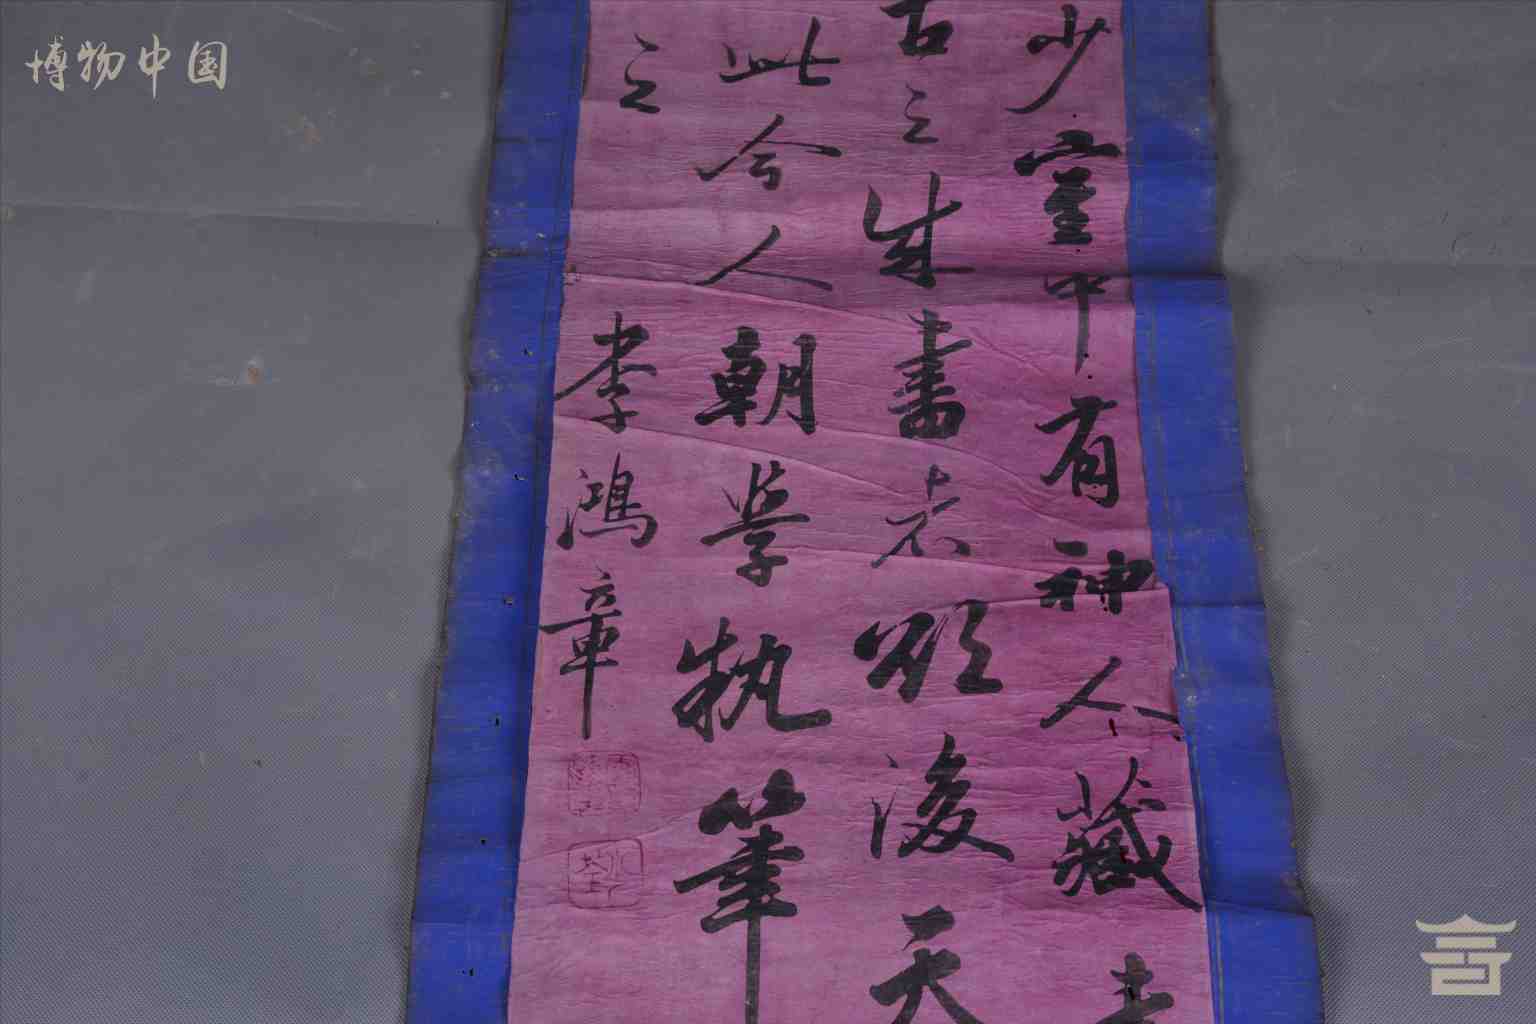 博物中国
少室中有神人藏
古之成書者欲後天
此今人朝學執筆
之
李鴻章